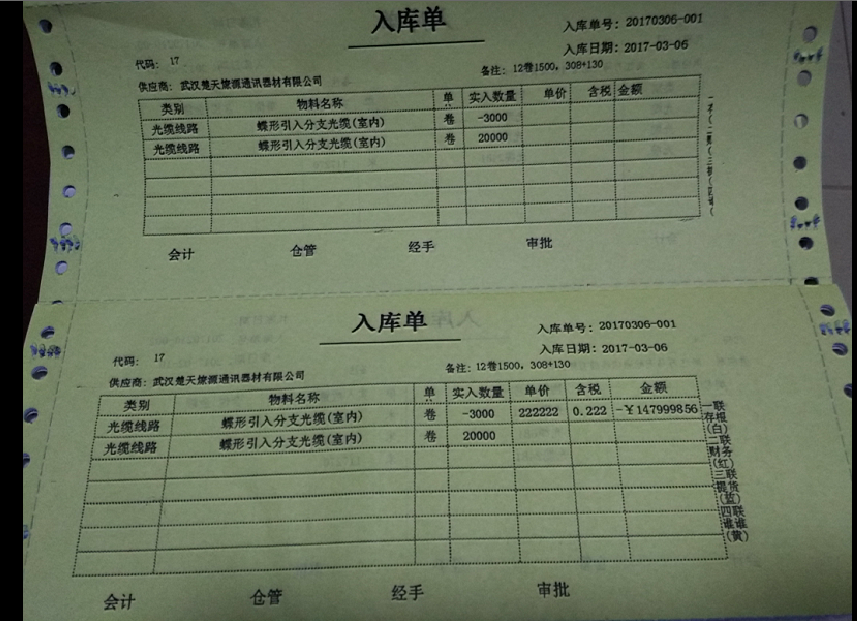 入库单
入库单号: 20170306-001
入库日期: 2017-03-06
代码: 17
备注: 12卷1500, 308+130
供应商: 武汉楚天燎源通讯器材有限公司
类别 物料名称 单 实入数量 单价 含税 金额
光缆线路 蝶形引入分支光缆(室内) 卷 -3000
光缆线路 蝶形引入分支光缆(室内) 卷 20000
会计 仓管 经手 审批
入库单
入库单号: 20170306-001
入库日期: 2017-03-06
代码: 17
备注: 12卷1500, 308+130
供应商: 武汉楚天燎源通讯器材有限公司
类别 物料名称 单 实入数量 单价 含税 金额
光缆线路 蝶形引入分支光缆(室内) 卷 -3000 222222 0.222 -¥147999856
光缆线路 蝶形引入分支光缆(室内) 卷 20000
一联
存根
(白)
二联
财务
(红)
三联
提货
(蓝)
四联
谁谁
(黄)
会计 仓管 经手 审批